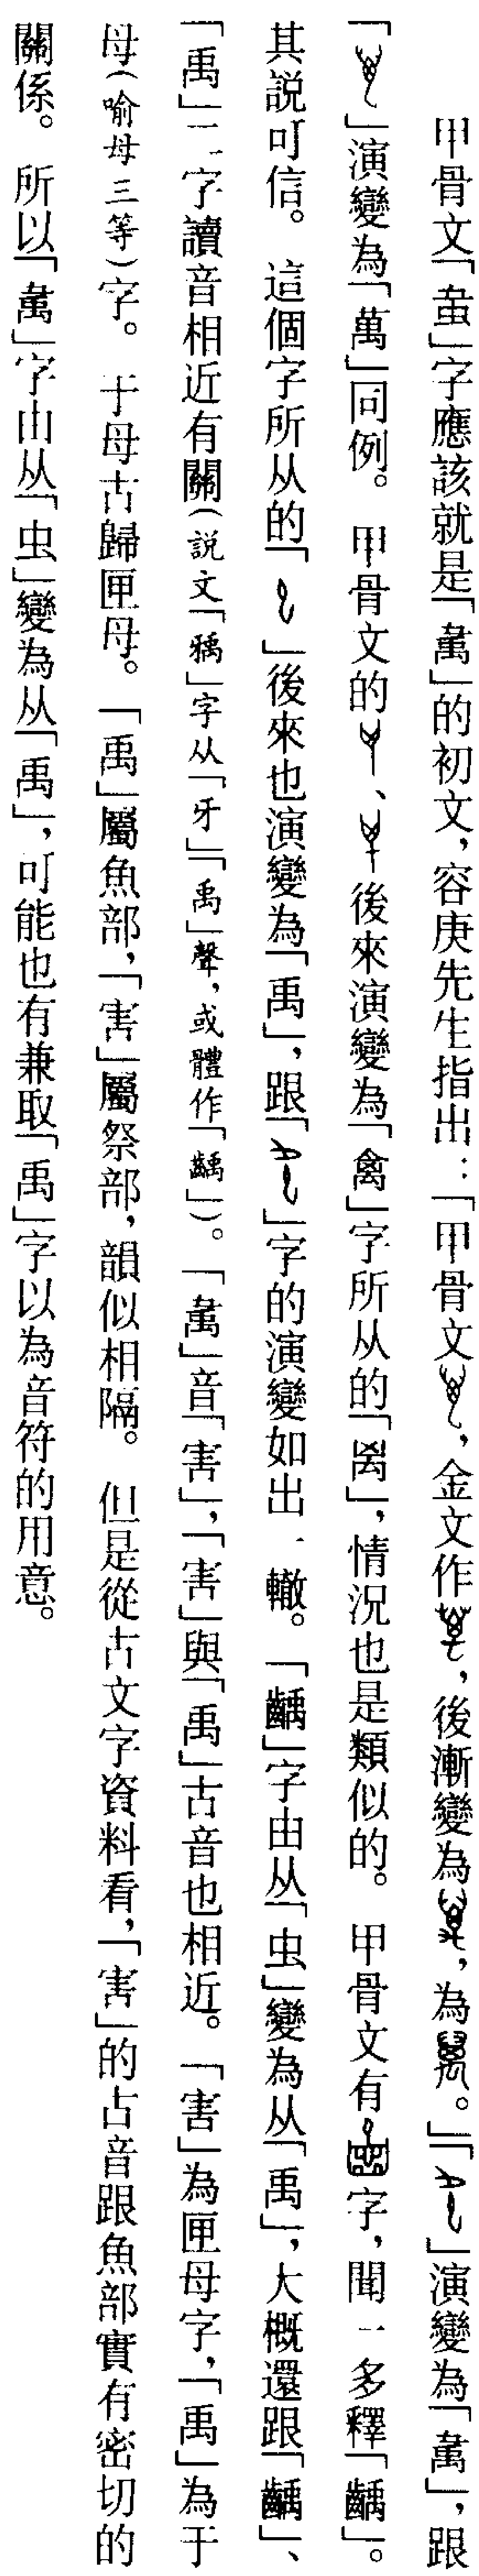 甲骨文「䖵」字應該就是「𡕒」的初文，容庚先生指出：「甲骨文，金文作，後漸變為，為。」「」演變為「」，跟
「」演變為「萬」同例。甲骨文的、後來演變為「禽」字所从的「禸」，情況也是類似的。甲骨文有字，聞一多釋「齲」。
其説可信。這個字所从的「」後來也演變為「禹」，跟「」字的演變如出一轍。「齲」字由从「虫」變為从「禹」，大概還跟「齲」、
「禹」二字讀音相近有關（説文「㺄」字从「牙」「禹」聲，或體作「齲」）。「」音「害」，「害」與「禹」古音也相近。「害」為匣母字，「禹」為于
母（喻母三等）字。于母古歸匣母。「禹」屬魚部，「害」屬祭部，韻似相隔。但是從古文字資料看，「害」的古音跟魚部實有密切的
關係。所以「」字由从「虫」變為从「禹」，可能也有兼取「禹」字以為音符的用意。